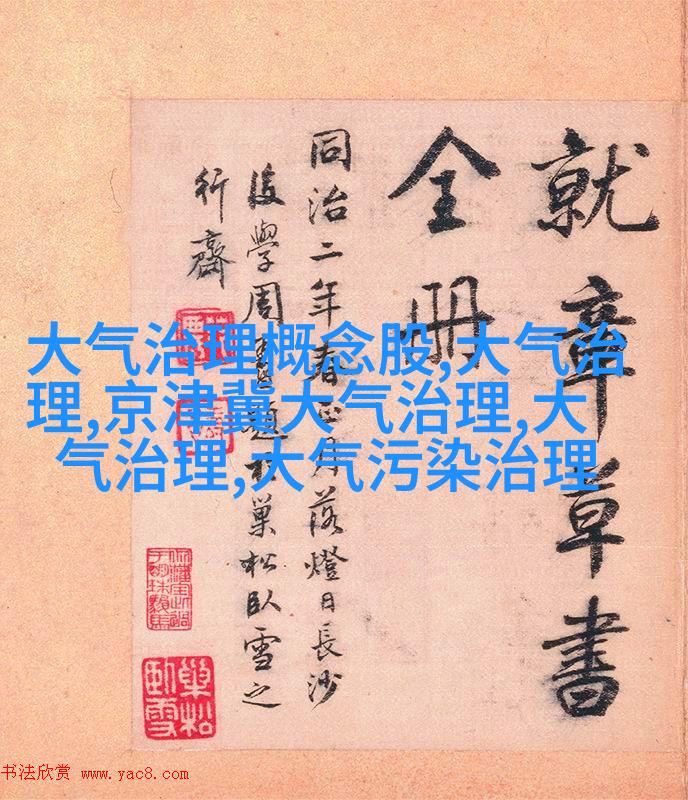 就章草書
全冊
同治二年春正月落燈日長沙
後學周壽題於巢松臥雪之
行齋
巢松
臥雪
大气治理概念股,大气治
理,京津冀大气治理,大
气治理,大气污染治理
书法欣赏 www.yac8.com